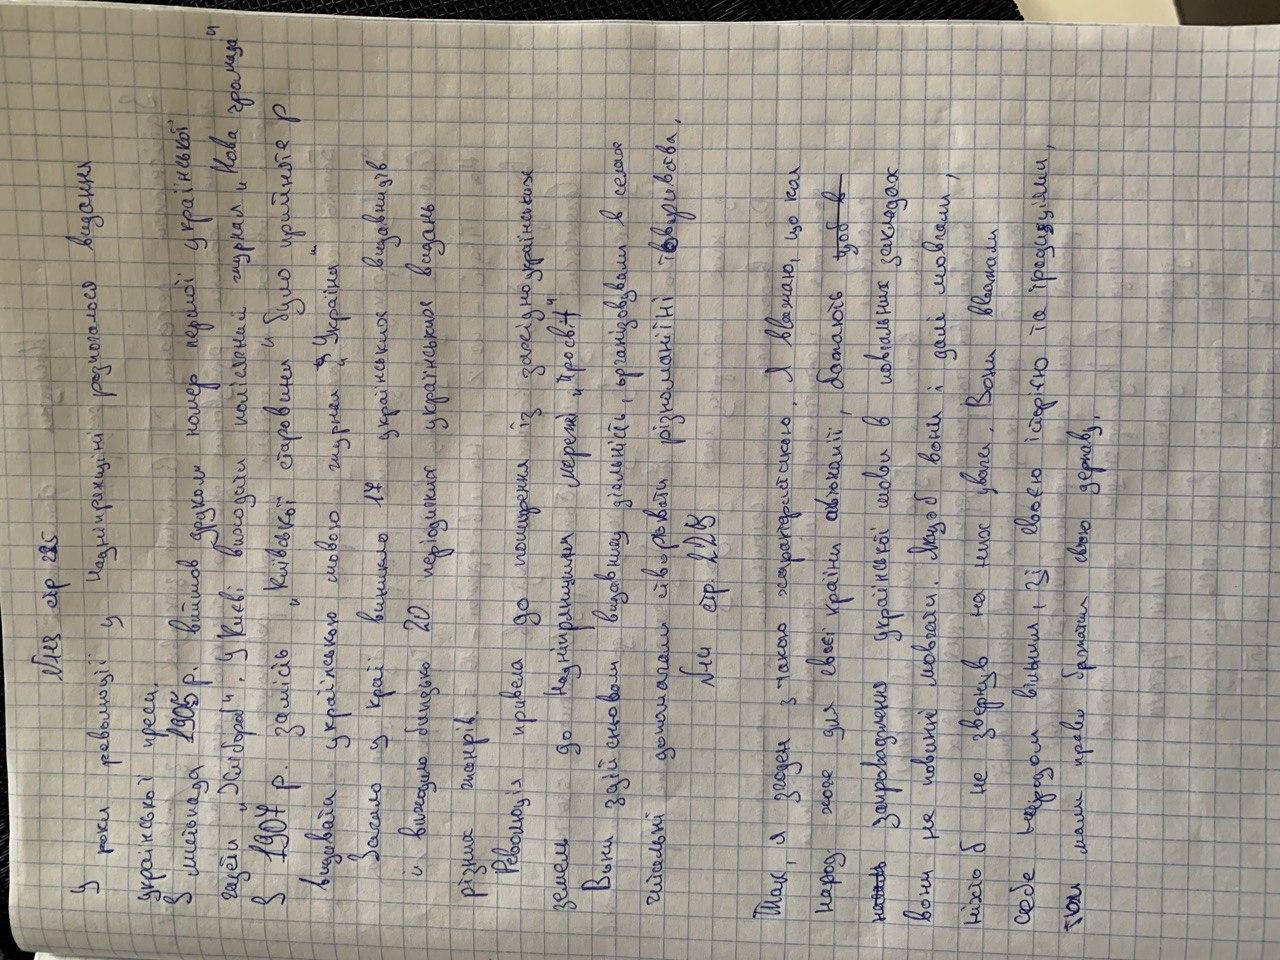 №3 стр 225
У роки революції у Наддніпрянщині розпочалося видання
української преси.
З листопада 1905 р. вийшов друком номер першої української
газети „Хлібороб". У Києві виходили політичний журнал „Нова громада"
З 1907 р. замість „Київської старовини" було прийняте р
видавати українською мовою журнал „Україна"
Загало у краї виникло 17 українських видавництв
и виходило близько 20 періодичних українських видань
різних жанрів.
Революція привела до поширення із західноукраїнських
земель до Наддніпрянщини мережі „Просвіт"
Вони здійснювали видавницу діяльність, організовували в селах
читальні допомагали створювати різноманітні товариства,
№4 стр. 228
Так, я згоден з такою характеристикою. Я вважаю, що кол
народ хоче для своєї країни автономії, бажають щоб в
запроваджено української мови в повчальних закладах
вони не повинні мовчати. Якщоб вони і далі мовчали,
ніхто б не звернув на них уваги. Вони вважали
себе народом вільним, зі своєю історією та традиціями,
тож мали право бажати свою державу.